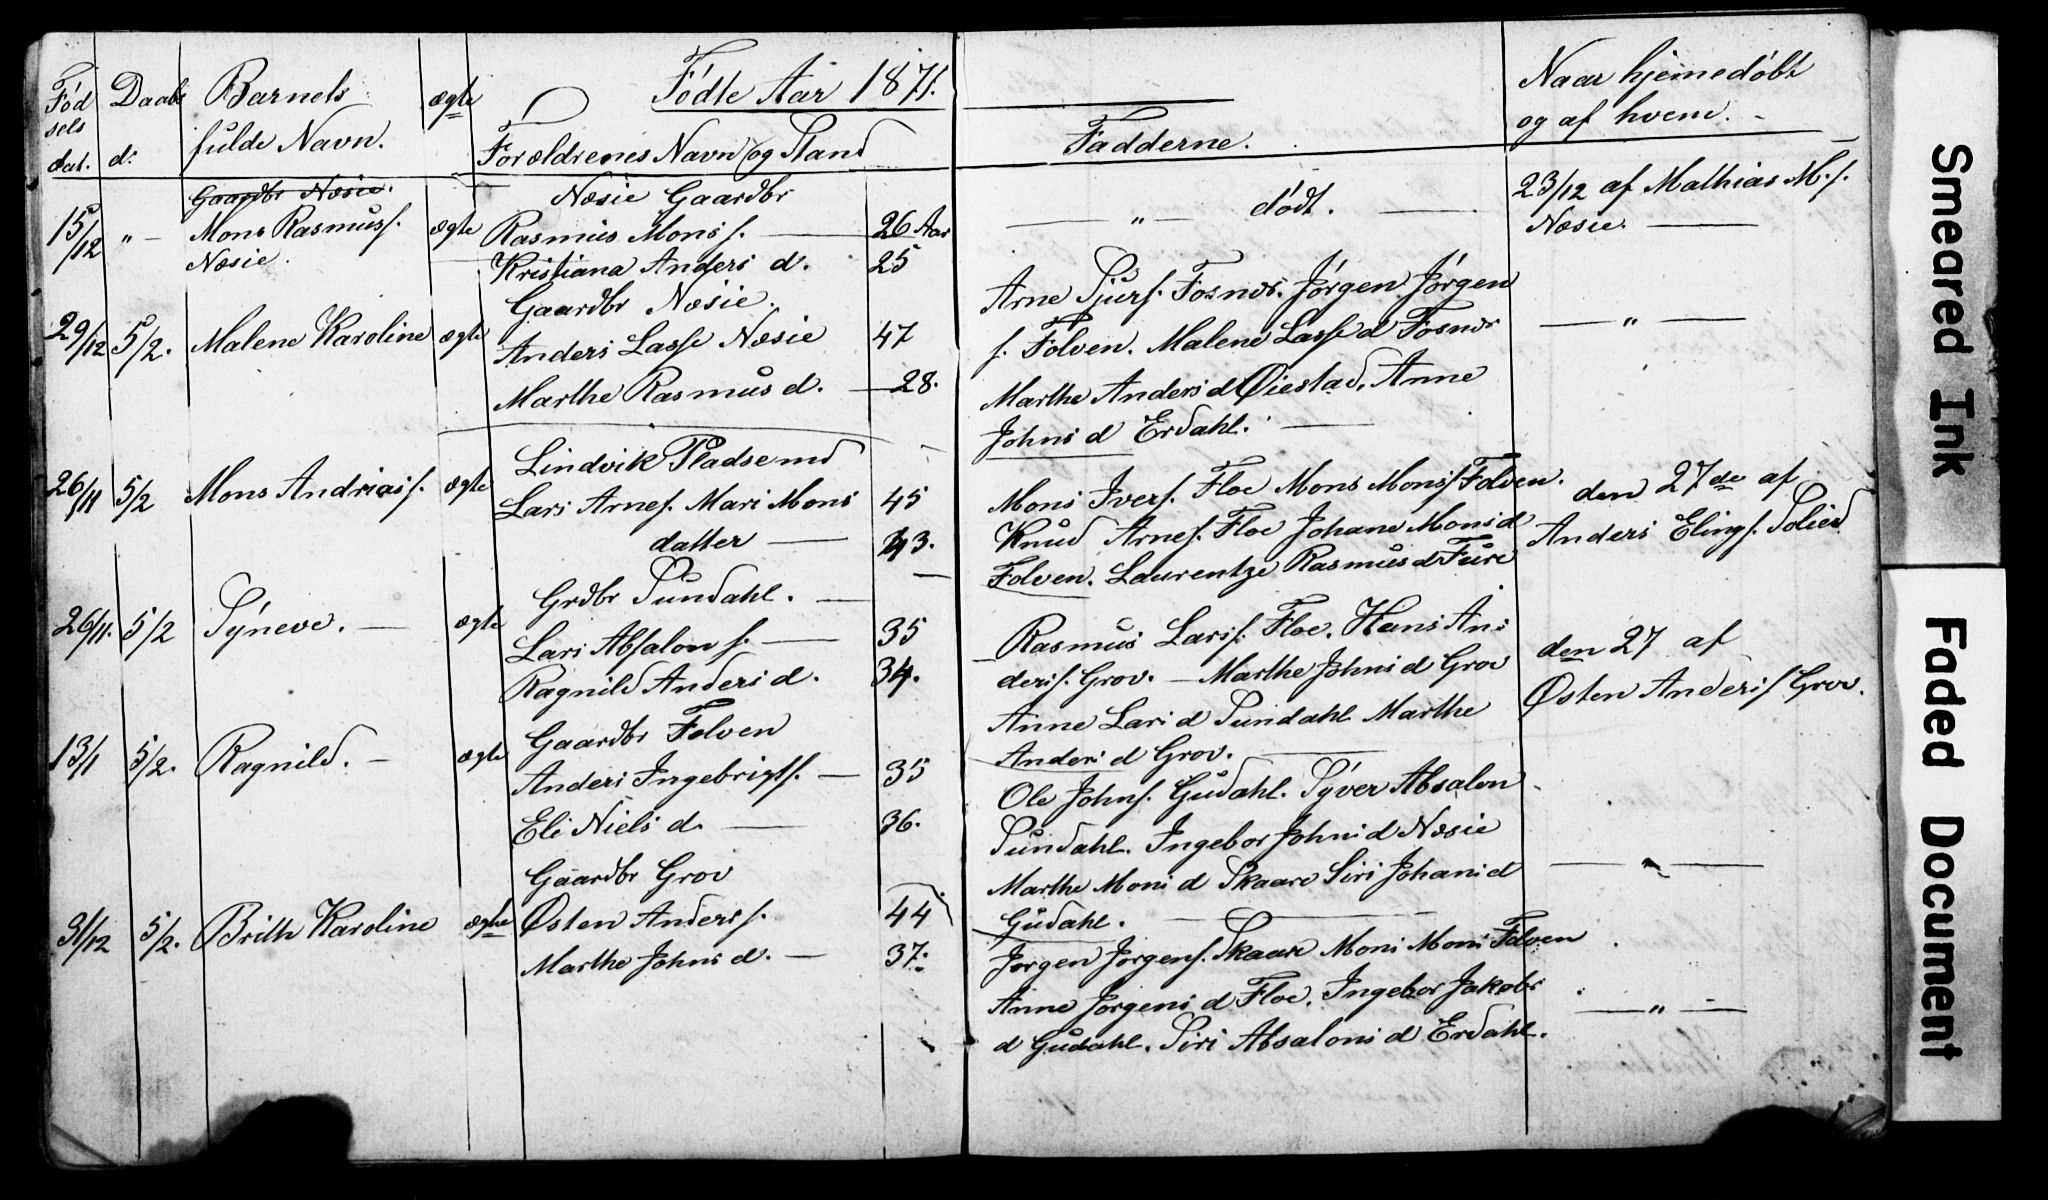 Fødte Aar 1871.
Fød
sels
dat.
Daabs
d:
Barnets
fulde Navn.
ægte
Forældrenes Navn og Stand
Fadderne.
Naar hjemedøbt
og af hvem. -
15/12
" -
Gaardbr Næsie.
Mons Rasmuss.
Næsie.
ægte
Næsie Gaardbr
Rasmus Monss. — 26 Aar
Kristiana Anders d. 25
— " — dødt. —
23/12 af Mathias M.s.
Næsie. —
29/12
5/2.
Malene Karoline
ægte
Gaardbr Næsie.
Anders Lasse Næsie 47
Marthe Rasmus d. — 28.
Arne Sjurs. Fosnæs. Jørgen Jørgen
s. Folven. Malene Lasse d Fosnæs
Marthe Anders d Øiestad. Anne
Johns d Erdahl. —
— " —
26/11
5/2
Mons Andrias s.
ægte
Lindvik Pladsemd
Lars Arnes. Mari Mons 45
datter — 43.
Mons Ivers. Floe Mons Monss Folven.
Knud Arnes. Floe Johane Mons d
Folven. Laurentze Rasmus d Fure
den 27de af
Anders Elings. Solied
26/11.
5/2
Syneve. —
ægte
Grdbr Sundahl. —
Lars Absalon s. — 35
Ragnild Anders d. 34.
Rasmus Larss. Floe. Hans An:
derss. Grov. — Marthe Johns d Grov
Anne Lars d Sundahl Marthe
Anders d Grov. —
den 27 af
Østen Anders s Grov.
13/1
5/2.
Ragnild. —
ægte
Gaardbr Folven
Anders Ingebrigts. — 35
Eli Niels d. — 36.
Ole Johns. Gudahl. Syver Absalon
Sundahl. Ingebor Johns d Næsie
Marthe Mons d Skaare Siri Johans d
Gudahl. —
— " —
31/12
5/2.
Brith Karoline
ægte
Gaardbr Grov
Østen Anders s. 44
Marthe Johns d. — 37.
Jørgen Jørgens. Skaare Mons Mons Folven
Anne Jørgens d Floe. Ingebor Jakobs
d Gudahl. Siri Absalons d Erdahl.
— " —
Smeared Ink
Faded Document